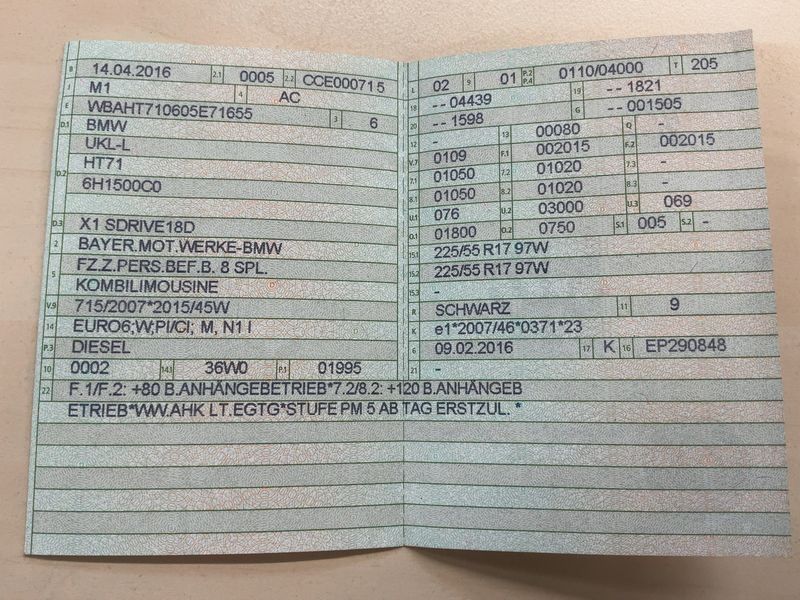 B 14.04.2016 2.1 0005 2.2 CCE000715
J M1 4 AC
E WBAHT710605E71655 3 6
D.1 BMW
D.2 UKL-L
HT71
6H1500C0
D.3 X1 SDRIVE18D
2 BAYER.MOT.WERKE-BMW
5 FZ.Z.PERS.BEF.B. 8 SPL.
KOMBILIMOUSINE
V.9 715/2007*2015/45W
14 EURO6;W;PI/CI; M, N1 I
P.3 DIESEL
10 0002 14.1 36W0 P.1 01995
L 02 9 01 P.2 P.4 0110/04000 T 205
18 -- 04439 19 -- 1821
20 -- 1598 G -- 001505
12 - 13 00080 Q -
V.7 0109 F.1 002015 F.2 002015
7.1 01050 7.2 01020 7.3 -
8.1 01050 8.2 01020 8.3 -
U.1 076 U.2 03000 U.3 069
O.1 01800 O.2 0750 S.1 005 S.2 -
15.1 225/55 R17 97W
15.2 225/55 R17 97W
15.3 -
R SCHWARZ 11 9
K e1*2007/46*0371*23
6 09.02.2016 17 K 16 EP290848
21 -
22 F.1/F.2: +80 B.ANHÄNGEBETRIEB*7.2/8.2: +120 B.ANHÄNGEB
ETRIEB*WW.AHK LT.EGTG*STUFE PM 5 AB TAG ERSTZUL. *